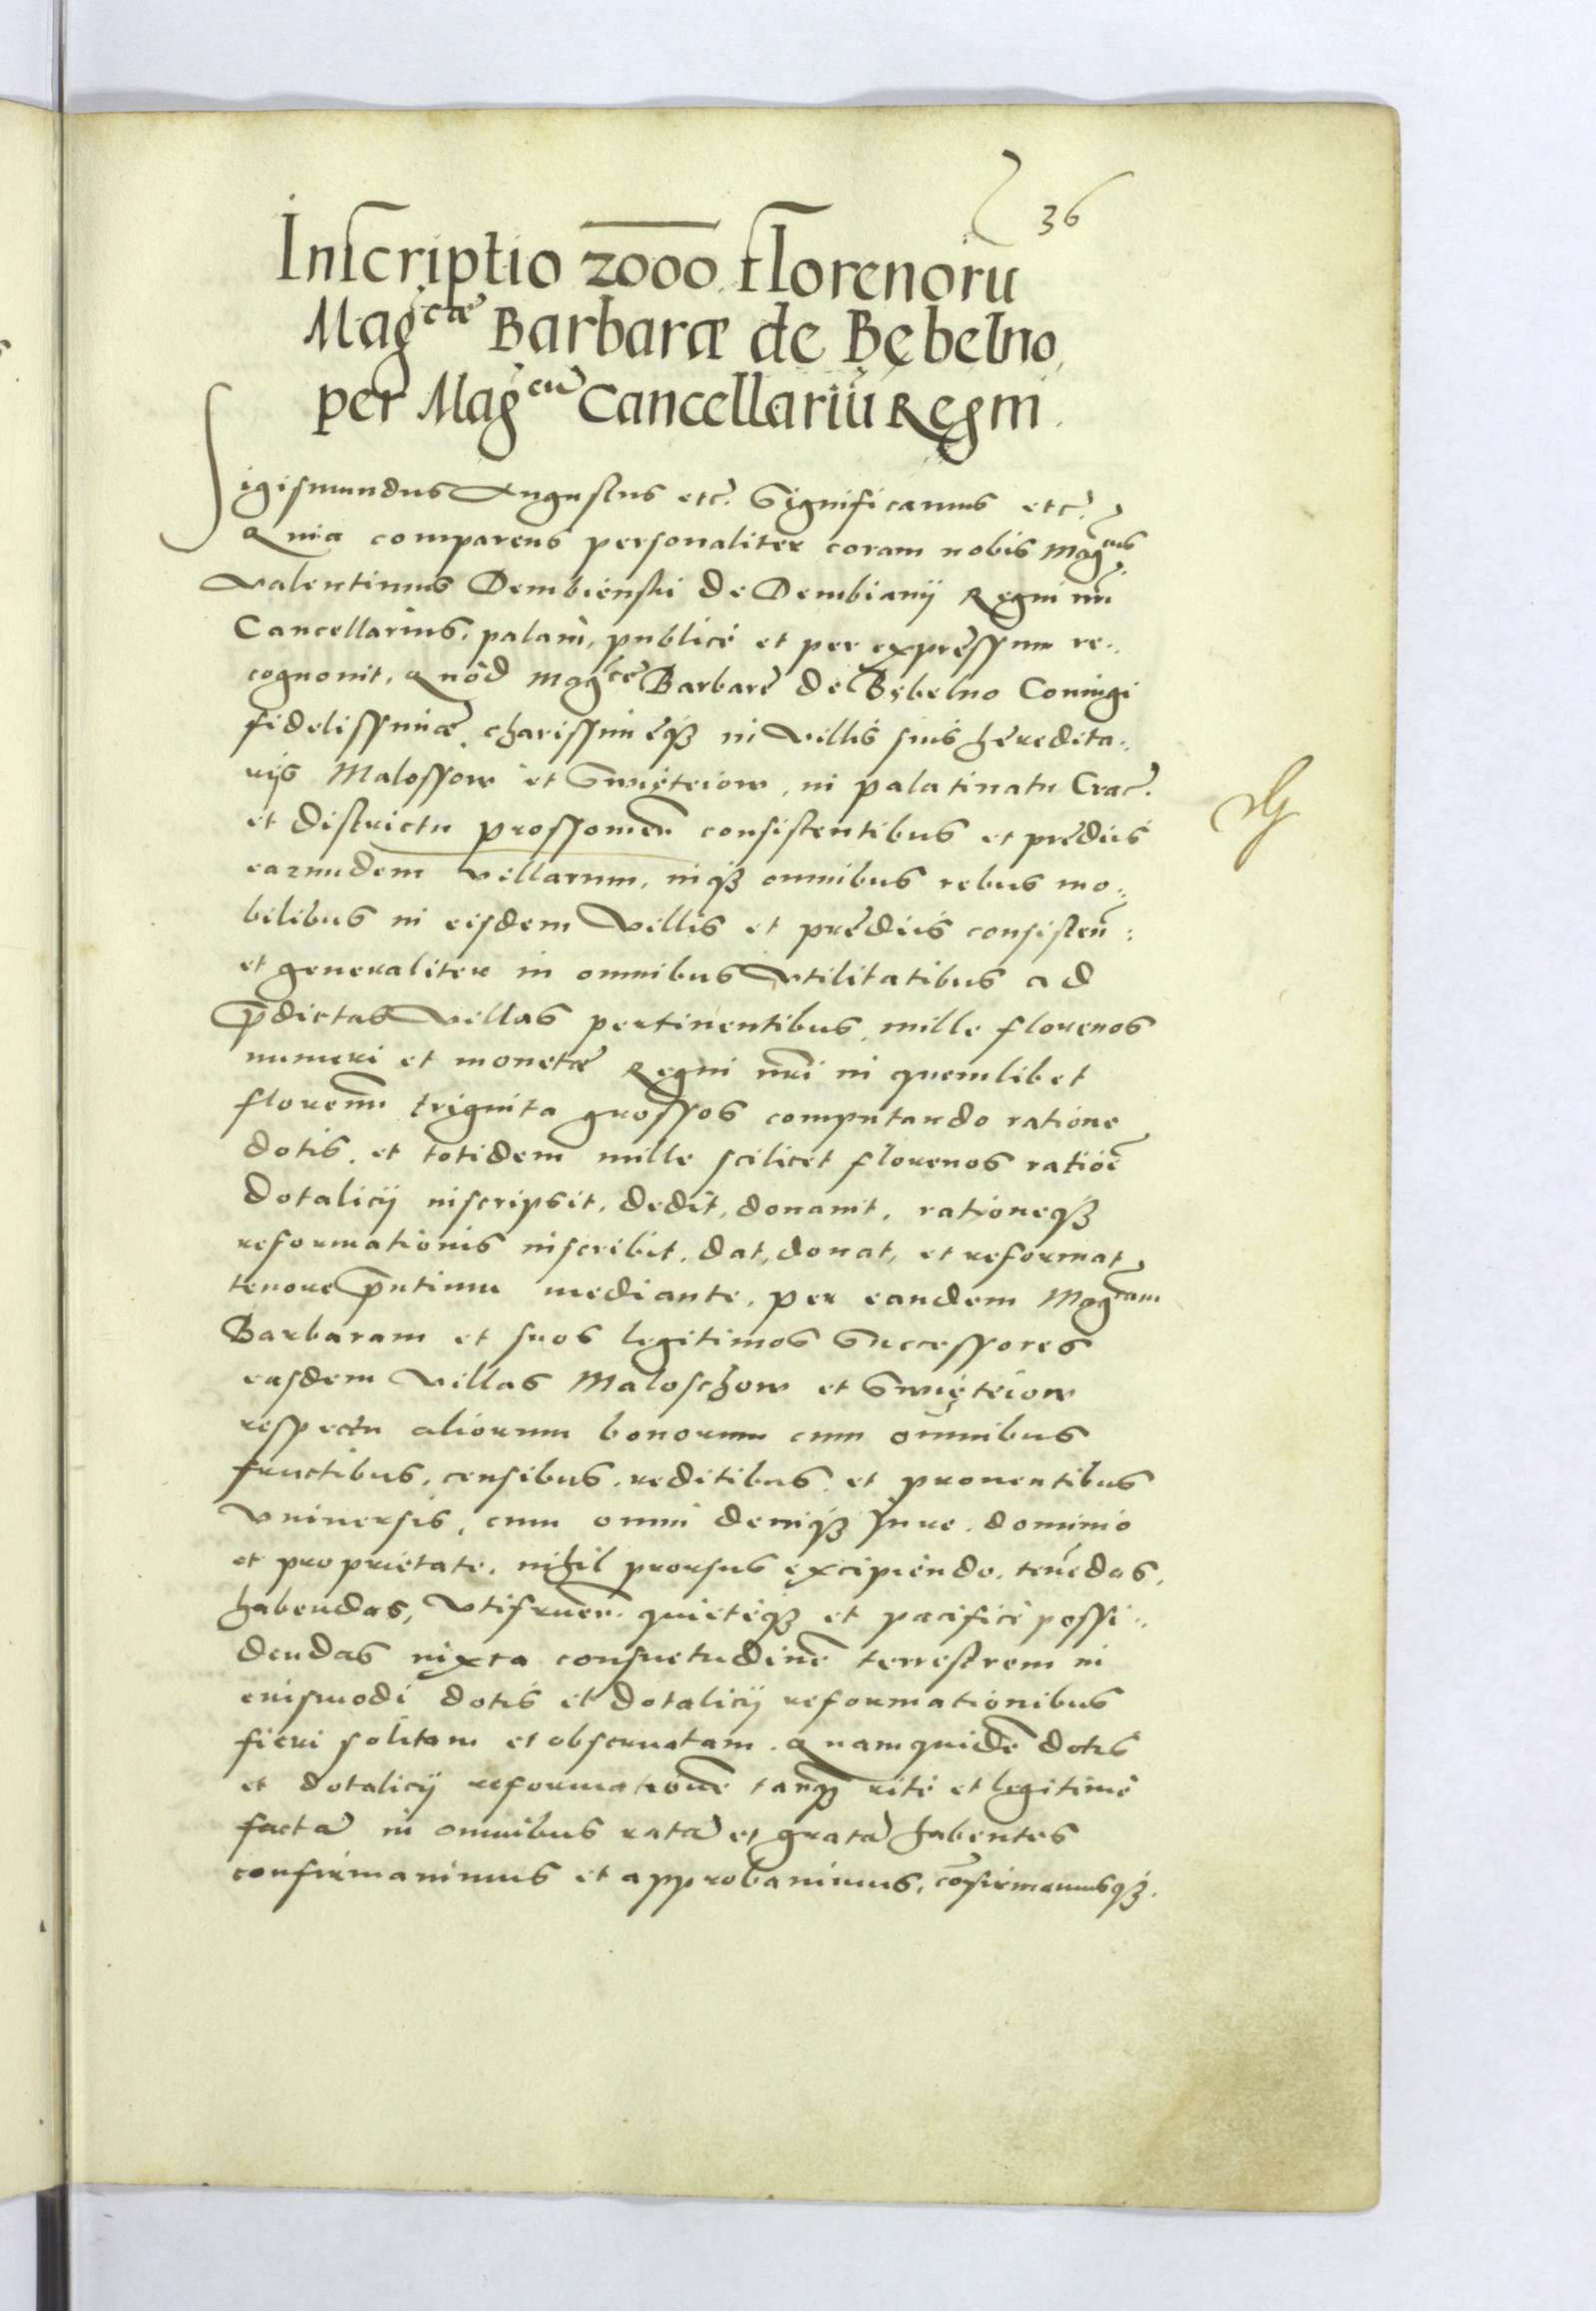 36
Inscriptio 2000 florenorū
Mag<sup>cæ</sup> Barbaræ de Bębelno,
per Mag<sup>cū</sup> Cancellariū Regni.
Sigismundus Augustus etc. Significamus etc.
Quia comparens personaliter coram nobis Mag<sup>cus</sup>
Valentinus Dembienski de Dembianÿ Regni nr̄i
Cancellarius, palam, publicè et per expressum re„
cognouit, Quòd Mag<sup>cę</sup> Barbarę de Bębelno Coniugi
fidelissimæ charissimęq; in Villis suis hęredita„
rijs Malossow et Swięteiow, in palatinatu Crac.
et districtu prossouien̄ consistentibus et prędiis
earundem Villarum, inq; omnibus rebus mo„
bilibus in eisdem Villis et prędiis consisten̄:
et generaliter in omnibus Vtilitatibus ad
p̄dictas Villas pertinentibus, mille florenos
numeri et monetæ Regni nr̄i in quemlibet
florenū triginta grossos computando ratione
dotis, et totidem mille scilicet florenos ratiōe
dotalicij inscripsit, dedit, donauit, rationeq;
reformationis inscribit, dat, donat, et reformat
tenore p̄ntium mediante, per eandem Mag<sup>cam</sup>
Barbaram et suos legitimos Successores
easdem Villas Maloschow et Swięteiow
respectu aliorum bonorum cum omnibus
fructibus, censibus, reditibus et prouentibus
Vniuersis, cum omni deniq; Jure, dominio
et proprietate, nihil prorsus excipiendo, tenēdas,
habendas, Vtifruen̄. quietèq; et pacificè possi„
dendas iuxta consuetudinē terrestrem in
eiusmodi dotis et dotalicij reformationibus
fieri solitam et obseruatam. Quamquidē dotis
et dotalicij reformationē tanq̄ ritè et legitimè
factā in omnibus ratā et gratā habentes
confirmauimus et approbauimus, cōfirmamusq;.